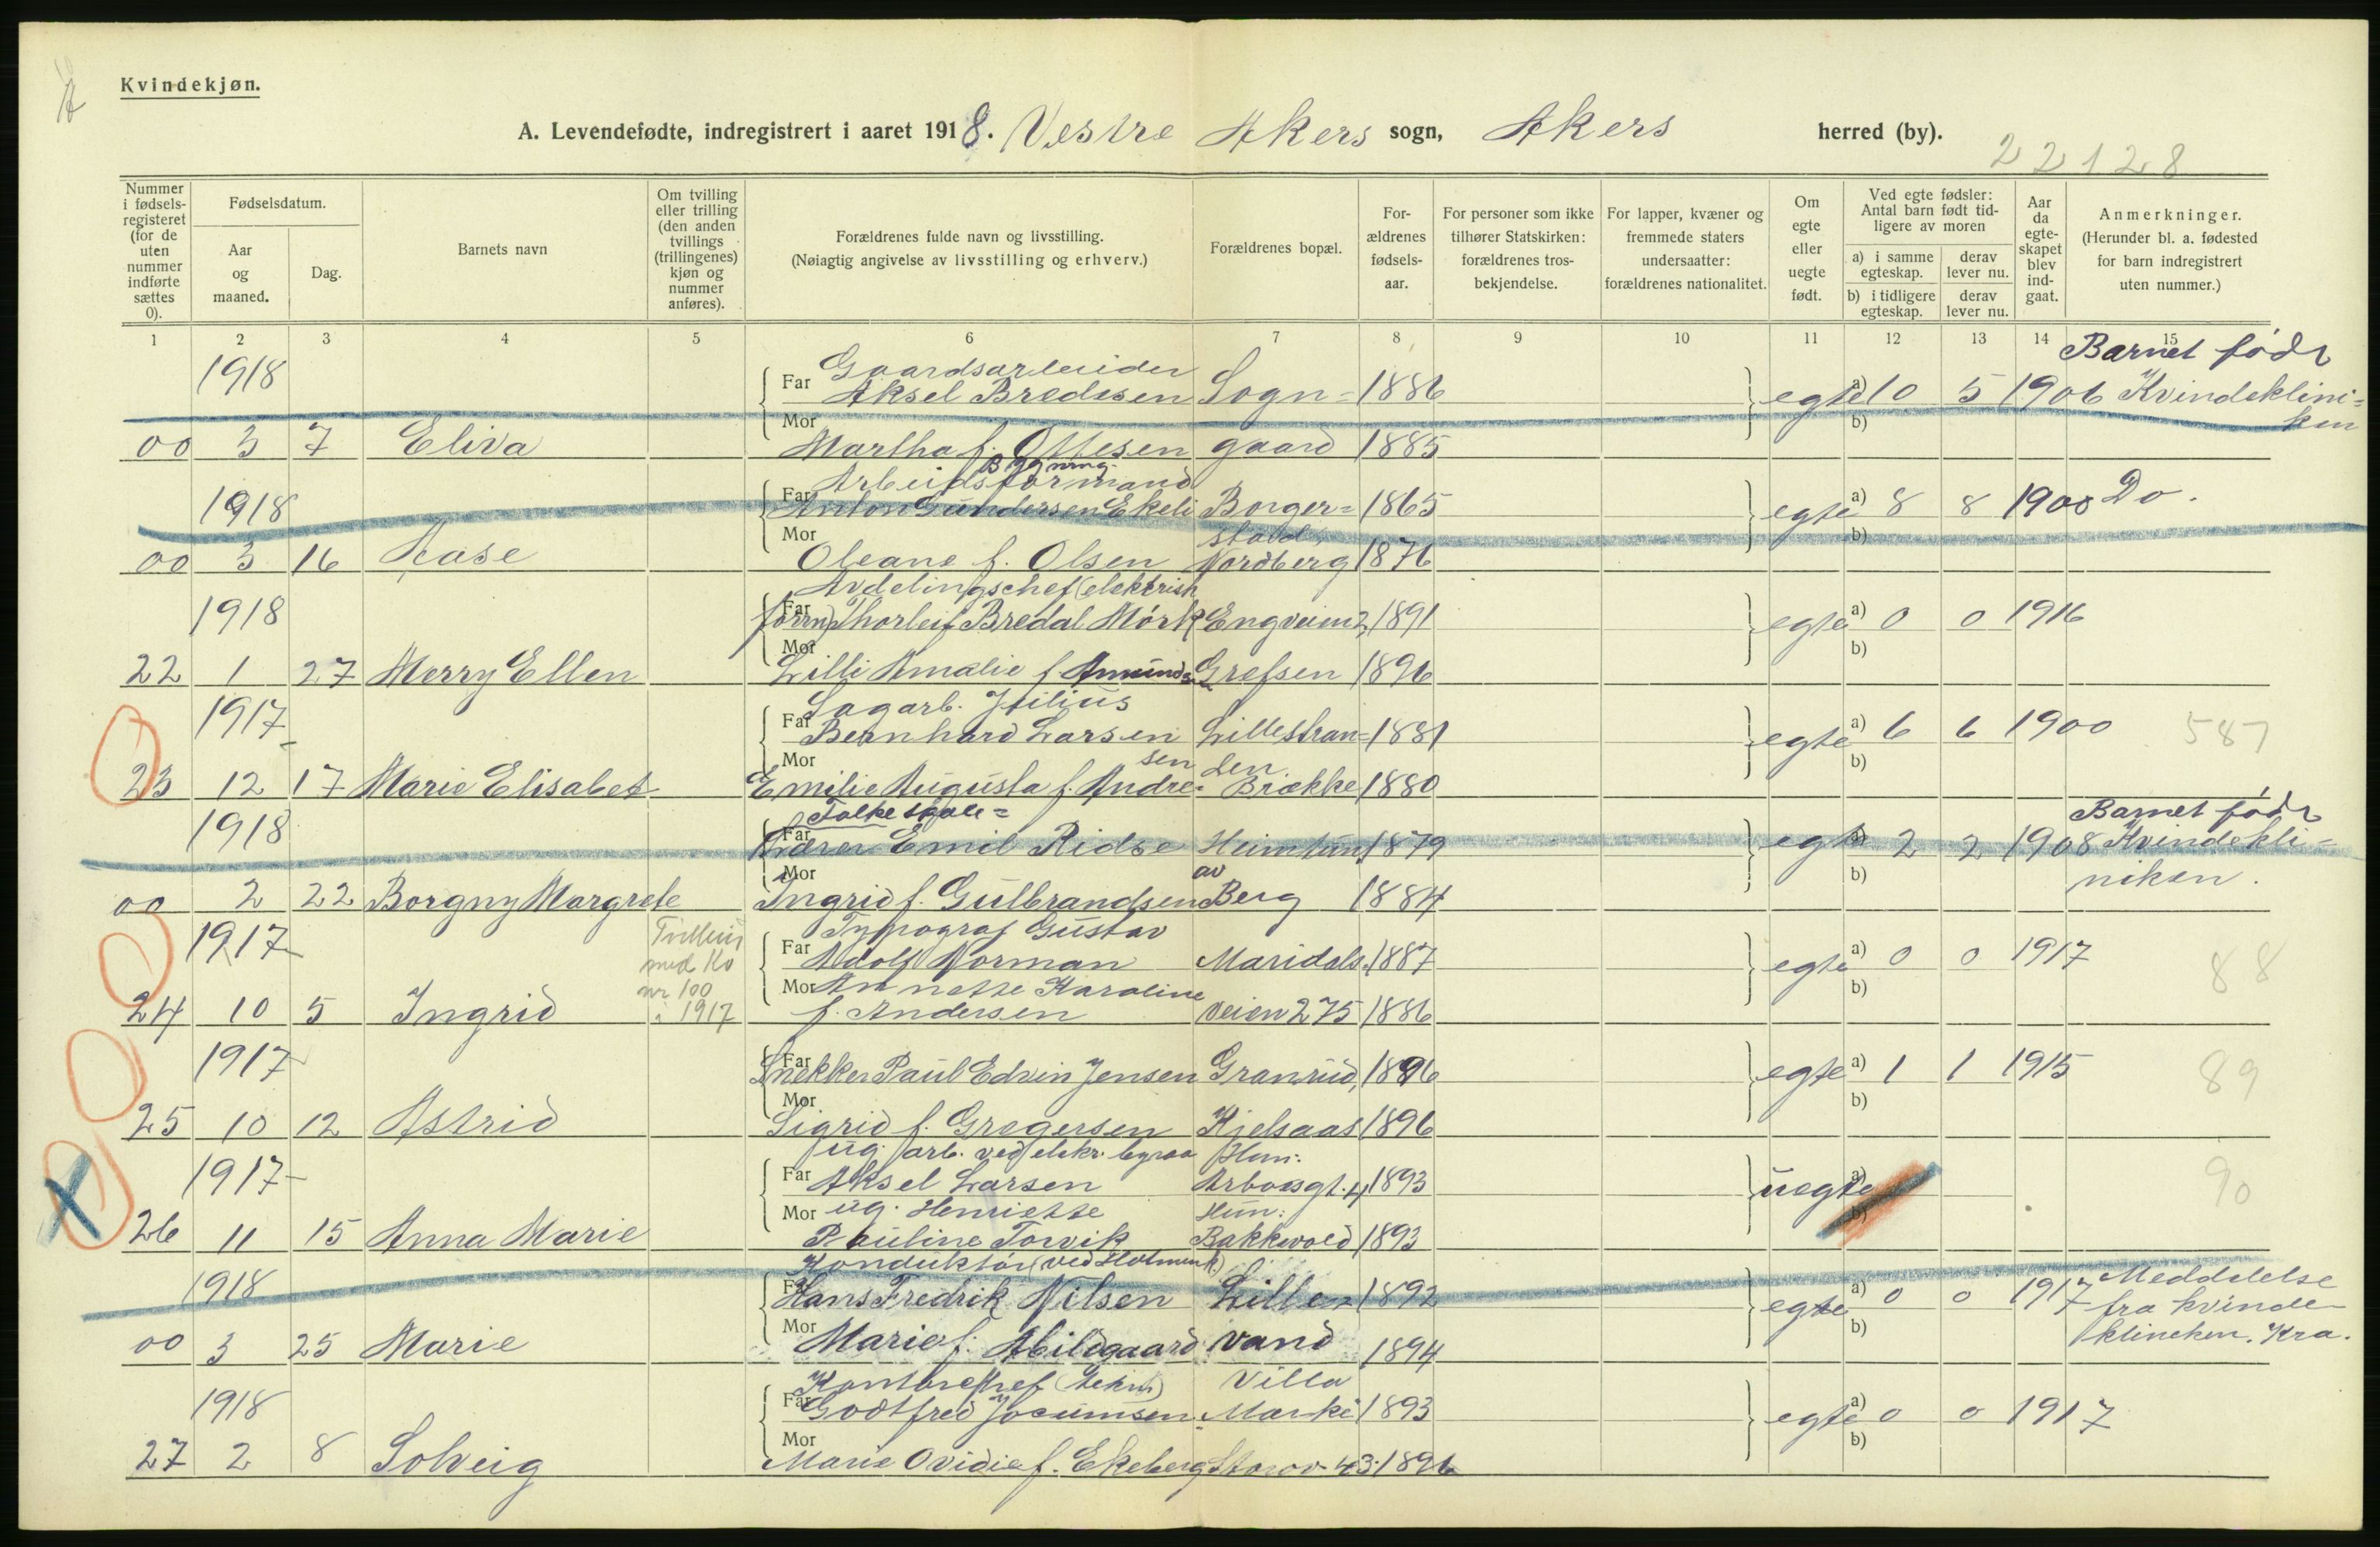 Kvindekjøn.
A. Levendefødte, indregistrert i aaret 1918. Vestre Akers sogn, Akers herred (by).
22128
Nummer i fødsels-registeret (for de uten nummer indførte sættes 0).
Fødselsdatum.
Aar og maaned.
Dag.
Barnets navn
Om tvilling eller trilling (den anden tvillings (trillingenes) kjøn og nummer anføres).
Forældrenes fulde navn og livsstilling.
(Nøiagtig angivelse av livsstilling og erhverv.)
Forældrenes bopæl.
For-ældrenes fødsels-aar.
For personer som ikke tilhører Statskirken: forældrenes tros-bekjendelse.
For lapper, kvæner og fremmede staters undersaatter: forældrenes nationalitet.
Om egte eller uegte født.
Ved egte fødsler: Antal barn født tid-ligere av moren
a) i samme egteskap.
derav lever nu.
b) i tidligere egteskap.
derav lever nu.
Aar da egte-skapet blev ind-gaat.
Anmerkninger.
(Herunder bl. a. fødested for barn indregistrert uten nummer.)
1 2 3 4 5 6 7 8 9 10 11 12 13 14 15
1918 Gaardsarbeider Barnet født
Far Aksel Bredesen Sogn= 1886 egte a) 10 5 1906 Kvindeklini=
Mor b) ken
00 3 7 Eliva Martha f. Ottesen gaard 1885
Bygning
1918 Arbeidsformand
Far Anton Gundersen Ekeli Borger= 1865 egte a) 8 8 1900 Do.
Mor stad, b)
00 3 16 Aase Oleane f. Olsen Nordberg 1876
Avdelingschef (elektrisk
1918 Far forrn) Thorleif Bredal Mörk Engveien 2, 1891 egte a) 0 0 1916
Mor b)
22 1 27 Merry Ellen Lilli Amalie f. Amundsen Grefsen 1896
1917 Sagarb. Julius
Far Bernhard Larsen Lillestran= 1881 egte a) 6 6 1900 587
Mor sen den b)
23 12 17 Marie Elisabet Emilie Augusta f. Andre= Brække 1880
1918 Folkeskole= Barnet født
Far Lærer Emil Ridse Heimtun 1879 egte a) 2 2 1908 Kvindekli=
Mor av b) niken.
00 2 22 Borgny Margrete Ingrid f. Gulbrandsen Berg 1884
1917 Tvilling med Ko nr 100 i 1917 Typograf Gustav
Far Adolf Norman Maridals. 1887 egte a) 0 0 1917 88
Mor Annette Karoline b)
24 10 5 Ingrid f. Andersen veien 275 1886
1917 Far Snekker Paul Edvin Jensen Granrud, 1896 egte a) 1 1 1915 89
Mor b)
25 10 12 Astrid Sigrid f. Gregersen Kjelsaas 1896
ug. arb. ved elektr. byraa Han:
1917 Far Aksel Larsen Arbosgt. 4 1893 uegte a) 90
Mor ug. Henriette Hun: b)
26 11 15 Anna Marie Pauline Torvik Bakkevold 1893
Konduktör (ved Holmenk.)
1918 Far Hans Fredrik Nilsen Lille= 1892 egte a) 0 0 1917 Meddelelse
Mor b) fra kvinde
00 3 25 Marie Marie f. Abildgaard vand 1894 klineken. Kra.
Kontorchef (tekn) Villa
1918 Far Godtfred Jocumsen Marki 1893 egte a) 0 0 1917
Mor b)
27 2 8 Solveig Marie Ovidie f. Ekeberg Storov. 43. 1896